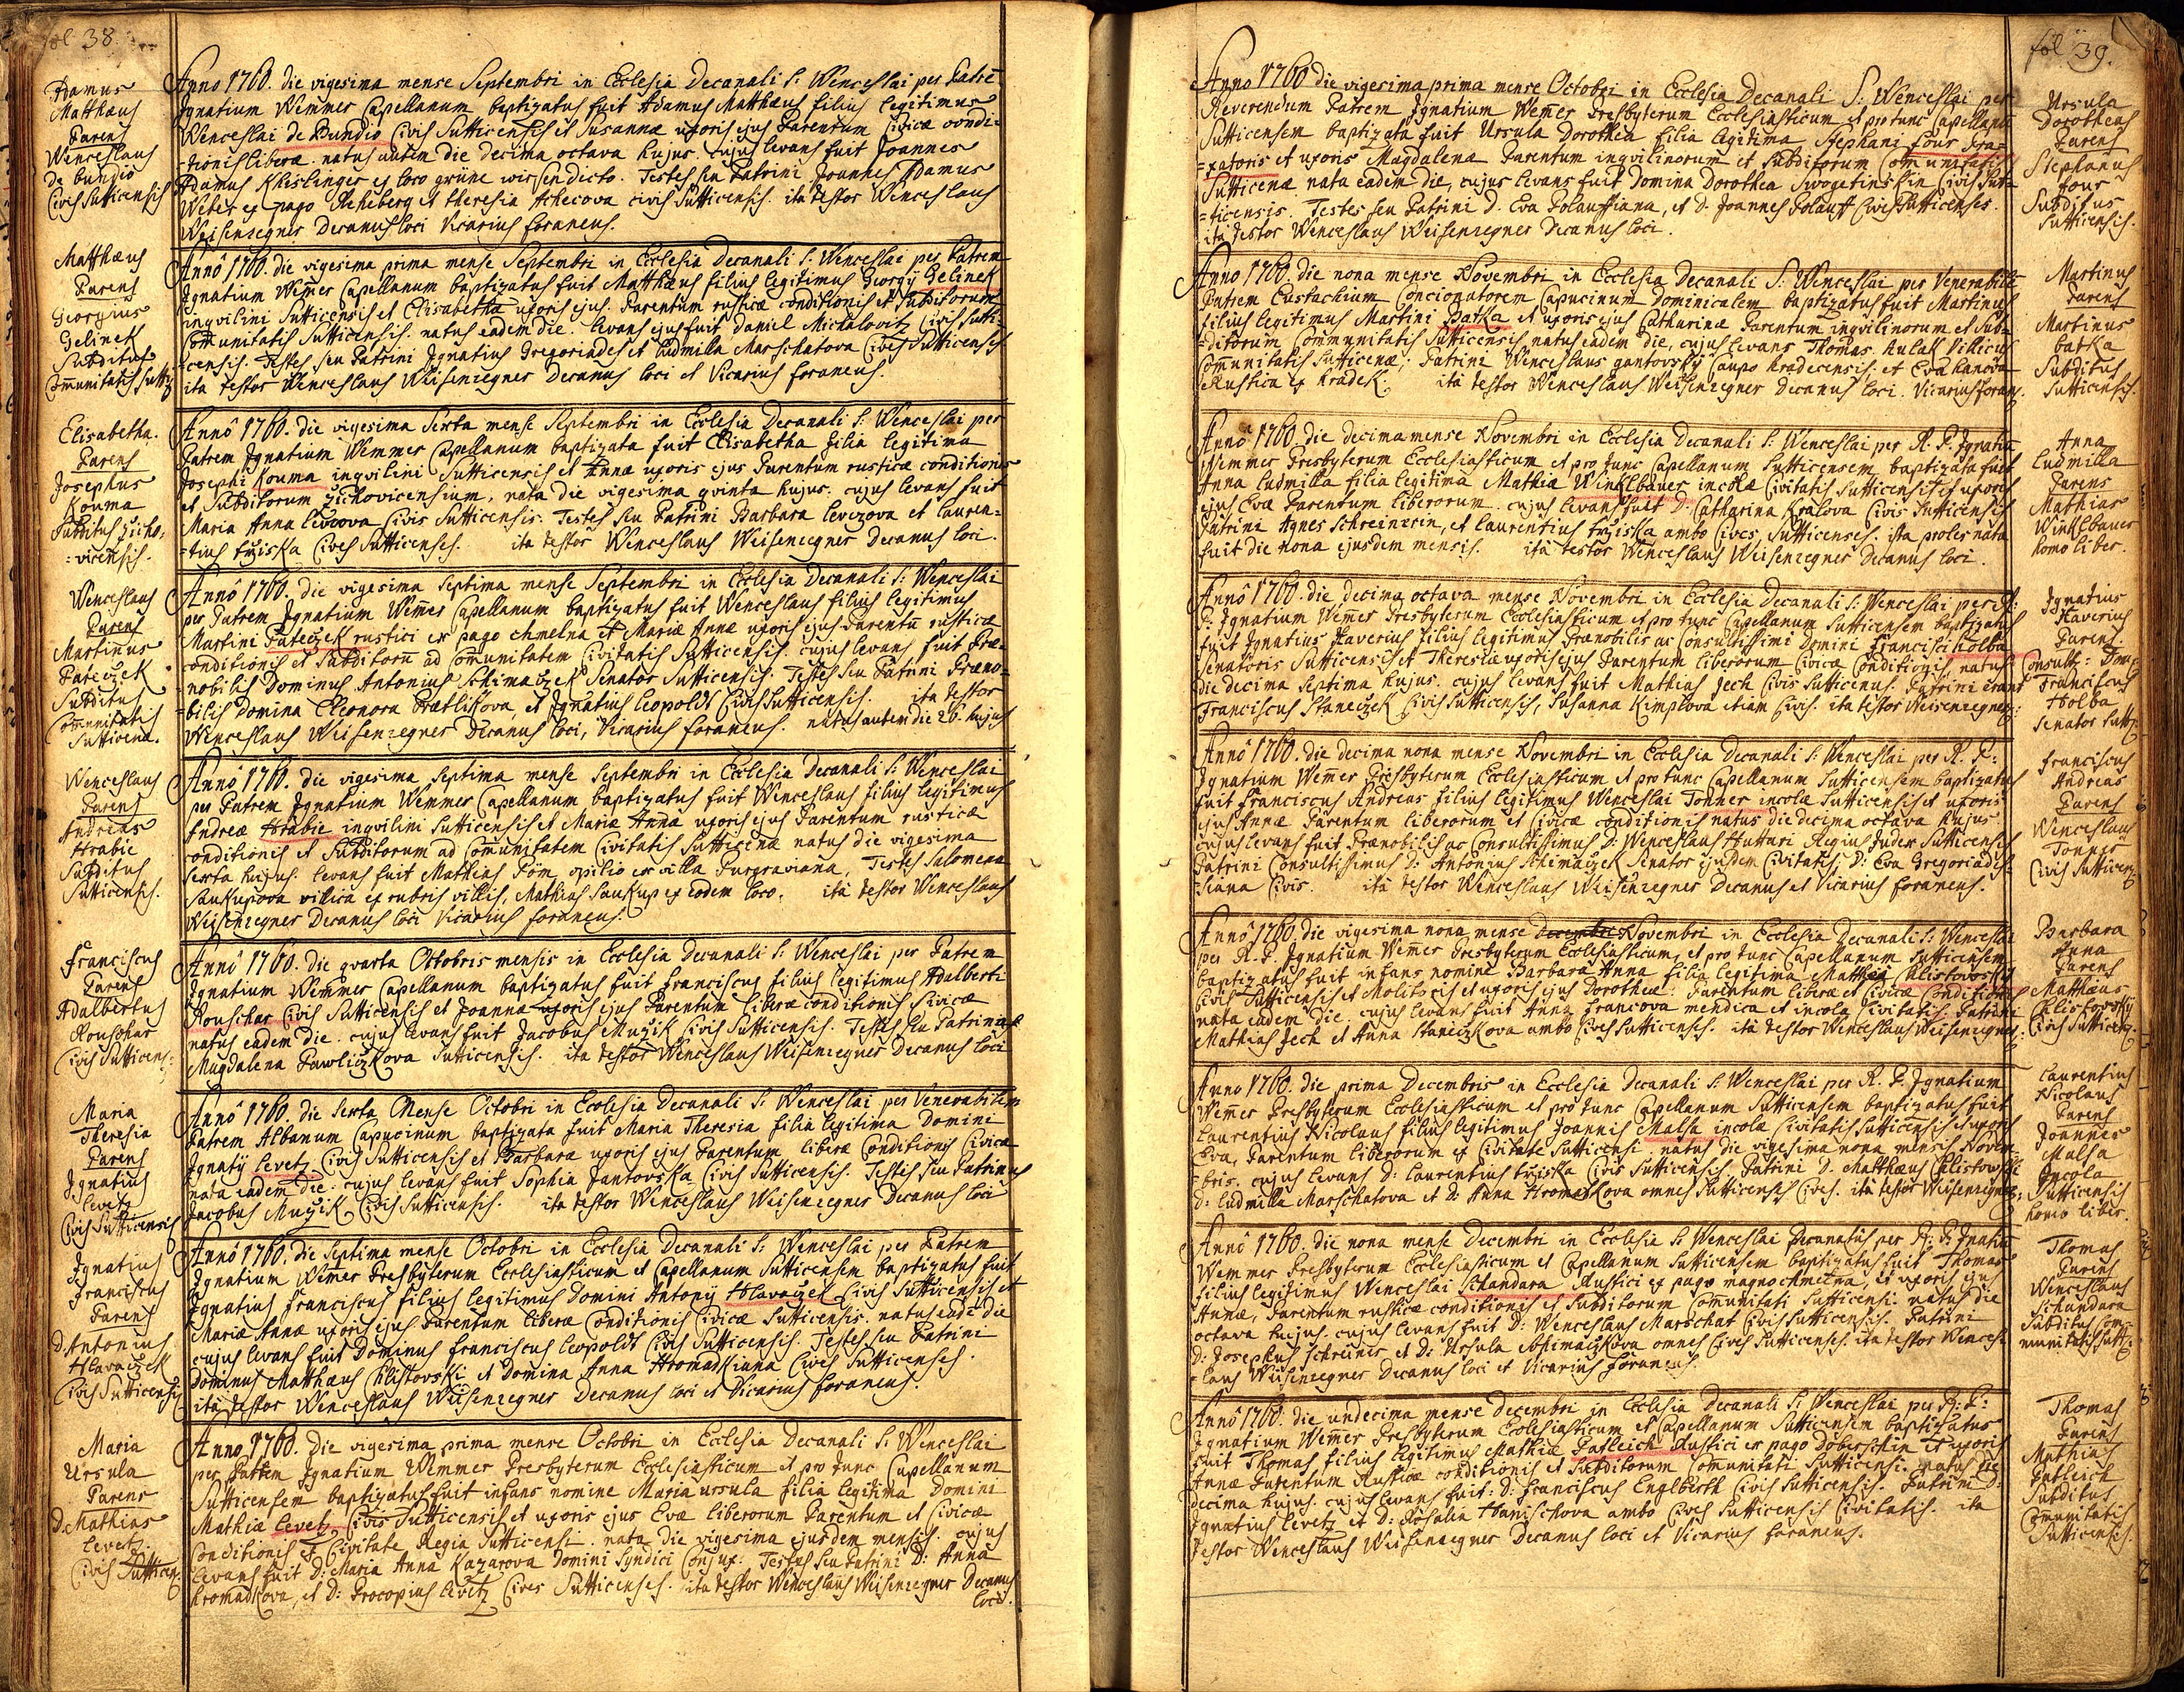 fol 38.
Adamus
Matthæus
Parens
Wenceslaus
de bundio
Civis Sutticensis
Anno 1760. die vigesima mense Septembri in Ecclesia Decanali S: Wenceslai per Patrē
Ignatium Wemmer Capellanum baptizatus fuit Adamus Matthæus filius legitimus
Wenceslai de Bundio Civis Sutticensis et Susannæ uxoris ejus Parentum Civicæ condi=
=tionis liberæ. natus autem die decima octava hujus. Cujus levans fuit Joannes
Adamus Khislinger ex loco grüne wiesen dicto. Testes seu Patrini Joannes Adamus
Weber ex pago Reheberg et theresia Achecova civis Sutticensis. ita testor Wenceslaus
Weisenregner Decanus loci Vicarius foraneus.
Matthæus
Parens
Georgius
Gelinek
Subditus
Com̄unitatis Suttic
Annô 1760. die vigesima prima mense Septembri in Ecclesia Decanali S: Wenceslai per Patrem
Ignatium Wem̄er Capellanum baptizatus fuit Matthæus filius legitimus Georgÿ Gelinek
inqvilini Sutticensis et Elisabetha uxoris ejus. Parentum rusticæ conditionis et Subditorum
Com̄unitatis Sutticensis. natus eadem die. levans ejus fuit Daniel Michalovitz Civis Sutti=
=censis. Testes seu Patrini Ignatius Gregoriades et Ludmilla Marschatova Cives Sutticenses
ita testor Wenceslaus Weisenregner Decanus loci et Vicarius foraneus.
Elisabetha.
Parens
Josephus
Kouma
Subditus Zicho=
=vicensis.
Annô 1760. die vigesima Sexta mense Septembri in Ecclesia Decanali S: Wenceslai per
Patrem Ignatium Wemmer Capellanum baptizata fuit Elisabetha filia legitima
Josephi Kouma inqvilini Sutticensis et Annæ uxoris ejus Parentum rusticæ conditionis
et Subditorum Zichovicensium, nata die vigesima qvinta hujus. cujus levans fuit
Maria Anna Civis Sutticensis. Testes seu Patrini Barbara Levezova et Lauren=
=tius tržiska Cives Sutticenses. ita testor Wenceslaus Weisenregner Decanus loci.
Wenceslaus
Parens
Martinus
Pateczek
Subditus
Com̄unitatis
Sutticena.
Annô 1760. die vigesima Septima mense Septembri in Ecclesia Decanali S: Wenceslai
per Patrem Ignatium Wem̄er Capellanum baptizatus fuit Wenceslaus filius legitimus
Martini Pateczek rustici ex pago chmelna et Mariæ Annæ uxoris ejus Parentū rusticæ
conditionis et Subditorū ad Com̄unitatem Civitatis Sutticensis. cujus levans fuit Præ=
=nobilis Dominus Antonius Schimaczek Senator Sutticensis. Testes seu Patrini Præno=
=bilis Domina Eleonora Brætlikova, et Ignatius leopoldt Civis Sutticensis. ita testor
Wenceslaus Weisenregner Decanus loci, Vicarius foraneus. natus autem die 26. hujus
Wenceslaus
Parens
Andreas
Hrabie
Subditus
Sutticensis.
Annô 1760. die vigesima Septima mense Septembri in Ecclesia Decanali S: Wenceslai
per Patrem Ignatium Wemmer Capellanum baptizatus fuit Wenceslaus filius legitimus
Andreæ Hrabie inqvilini Sutticensis et Mariæ Annæ uxoris ejus Parentum rusticæ
conditionis et Subditorum ad Com̄unitatem Civitatis Sutticenæ natus die vigesima
Sexta hujus. levans fuit Mathias Pöm opilio ex villa Purgraviana, Testes Salomena
Saukupova villica ex rubris villis, Mathias Saukup ex eodem loco. ita testor Wenceslaus
Weisenregner Decanus loci Vicarius foraneus.
Franciscus
Parens
Adalbertus
Rouschar
Civis Sutticens:
Annô 1760. die qvarta Octobris mensis in Ecclesia Decanali S: Wenceslai per Patrem
Ignatium Wem̄er Capellanum baptizatus fuit franciscus filius legitimus Adalberti
Rouschar Civis Sutticensis et Joannæ uxoris ejus Parentum liberæ conditionis Civicæ
natus eadem die. cujus levans fuit Jacobus Mužik Civis Sutticensis. Testes seu Patrini
Magdalena Pawliczkova Sutticensis. ita testor Wenceslaus Weisenregner Decanus loci
Maria
Theresia
Parens
Ignatius
levetz
Civis Sutticensis
Annô 1760. die Sexta Mense Octobri in Ecclesia Decanali S: Wenceslai per Venerabilem
Patrem Albanum Capucinum baptizata fuit Maria Theresia filia legitima Domini
Ignatÿ levetz Civis Sutticensis et Barbaræ uxoris ejus Parentum liberæ Conditionis Civicæ
nata eadem die. cujus levans fuit Sophia Jantovska Civis Sutticensis. Testes seu Patrinus
Jacobus Mužik Civis Sutticensis. ita testor Wenceslaus Weisenregner Decanus loci
Ignatius
franciscus
Parens
D. Antonius
Hlavaczek
Civis Sutticensis
Annô 1760. die Septima mense Octobri in Ecclesia Decanali S: Wenceslai per Patrem
Ignatium Wem̄er Presbyterum Ecclesiasticum et Capellanum Sutticensem baptizatus fuit
Ignatius franciscus filius legitimus Domini Antonÿ Hlavaczek Civis Sutticensis et
Mariæ Annæ uxoris ejus Parentum liberæ Conditionis Civicæ Sutticensis. natus eadē die
cujus levans fuit Dominus franciscus leopoldt Civis Sutticensis. Testes seu Patrini
Dominus Matthæus Chlistovski et Domina Anna Hromadkiana Cives Sutticenses.
ita testor Wenceslaus Weisenregner Decanus loci et Vicarius foraneus.
Maria
Ursula
Parens
D. Mathias
levetz.
Civis Sutticen:
Anno 1760. die vigesima prima mense Octobri in Ecclesia Decanali S: Wenceslai
per Patrem Ignatium Wemmer Presbyterum Ecclesiasticum et pro tunc Capellanum
Sutticensem baptizatus fuit infans nomine Maria ursula filia legitima Domini
Mathiæ levetz Civis Sutticensis et uxoris ejus Evæ liberorum Parentum et Civicæ
Conditionis ex Civitate Regia Sutticensi. nata die vigesima ejusdem mensis. cujus
levans fuit D: Maria Anna Kazarova Domini Syndici Conjux. Testes seu Patrini D: Anna
hromadkova, et D: Procopius levetz Cives Sutticenses. ita testor Wenceslaus Weisenregner Decanus
loci.
fol 39.
Anno 1760 die vigesima prima mense Octobri in Ecclesia Decanali S: Wenceslai per
Reverendum Patrem Ignatium Wem̄er Presbyterum Ecclesiasticum et pro tunc Capellanū
Sutticensem baptizata fuit Ursula Dorothea filia legitima Stephani four
et uxoris Magdalena Parentum inqvilinorum et Subditorum Com̄unitatis
Sutticenæ nata eadem die, cujus levans fuit Domina Dorothea Swogetinskin Civis Sut=
=ticensis. Testes seu Patrini D. Eva Polauffiana, et D. Joannes Polauff Cives Sutticenses.
ita testor Wenceslaus Weisenregner Decanus loci.
Ursula
Dorothea
Parens
Stephanus
four
Subditus
Sutticensis.
Anno 1760. die nona mense Novembri in Ecclesia Decanali S: Wenceslai per Venerabilē
Patrem Eustachium Concionatorem Capucinum Dominicalem baptizatus fuit Martinus
filius legitimus Martini Batka et uxoris ejus Catharinæ Parentum inqvilinorum et Sub=
=ditorum Communitatis Sutticensis natus eadem die, cujus levans Thomas Aulall Villicus
Com̄unitatis Sutticenæ; Patrini Wenceslaus gantovskÿ Caupo hradecensis: et Eva hanova
Rustica ex hradek. ita testor Wenceslaus Weisenregner Decanus loci. Vicarius foran.
Martinus
Parens
Martinus
batka
Subditus
Sutticensis.
Annô 1760. die decima mense Novembri in Ecclesia Decanali S: Wenceslai per R. P. Ignatiū
Wemmer Presbyterum Ecclesiasticum et pro tunc Capellanum Sutticensem baptizata fuit
Anna ludmilla filia legitima Mathiæ Winklbauer incolæ Civitatis Sutticensis et uxoris
ejus Evæ Parentum liberorum. cujus levans fuit D: Catharina Kralova Civis Sutticensis
Patrini Agnes Schreinerin, et laurentius tržiska ambo Cives Sutticenses. ista proles nata
fuit die nona ejusdem mensis. ita testor Wenceslaus Weisenregner Decanus loci.
Anna
Ludmilla
Parens
Mathias
Winklbauer
homo liber.
Annô 1760. die decima octava mense Novembri in Ecclesia Decanali S: Wenceslai per R:
P. Ignatium Wem̄er Presbyterum Ecclesiasticum et pro tunc Capellanum Sutticensem baptizatus
fuit Ignatius Xaverius filius legitimus Prænobilis ac Consultissimi Domini francisci holba
Senatoris Sutticensis et Theresiæ uxoris ejus Parentum liberorum Civicæ Conditionis natus
die decima Septima hujus. cujus levans fuit Mathias Jech Civis Sutticenus. Patrini erant
Franciscus Staneczek Civis Sutticensis, Susanna Kimplova etiam Civis. ita testor Weisenregner:
Ignatius
Xaverius
Parens
Consult: Dom:
Franciscus
Holba
Senator Sutt:
Annô 1760. die decima nona mense Novembri in Ecclesia Decanali S: Wenceslai per R. P:
Ignatium Wem̄er Presbyterum Ecclesiasticum et pro tunc Capellanum Sutticensem baptizatus
fuit franciscus Andreas filius legitimus Wenceslai Tonner incolæ Sutticensis et uxoris
ejus Annæ Parentum liberorum et Civicæ conditionis natus die decima octava hujus.
cujus levans fuit Prænobilis ac Consultissimus D: Wenceslaus Huttari Regius Judex Sutticensis
Patrini Consultissimus D: Antonius Schimaczek Senator ejusdem Civitatis: D: Eva Gregoriades=
=iana Civis. ita testor Wenceslaus Weisenregner Decanus et Vicarius foraneus.
franciscus
Andreas
Parens
Wenceslaus
Tonner
Civis Sutticen:
Annô 1760. die vigesima nona mense Novembri in Ecclesia Decanali S: Wenceslai
per R. P. Ignatium Wem̄er Presbyterum Ecclesiasticum, et pro tunc Capellanum Sutticensem
baptizatus fuit infans nomine Barbara Anna filia legitima Matthæi Chlistovskÿ
Civis Sutticensis et Molitoris et uxoris ejus Dorotheæ: Parentum liberæ et Civicæ Conditionis
nata eadem die. cujus levans fuit Anna francova mendica et incola Civitatis. Patrini
Mathias Jech et Anna Staneczkova ambo Cives Sutticenses. ita testor Wenceslaus Weisenregner.
Barbara
Anna
Parens
Matthæus
Chlistovskÿ
Civis Sutticen:
Anno 1760. die prima Decembris in Ecclesia Decanali S: Wenceslai per R. P. Ignatium
Wem̄er Presbyterum Ecclesiasticum et pro tunc Capellanum Sutticensem baptizatus fuit
Laurentius Nicolaus filius legitimus Joannis Malsa incolæ Civitatis Sutticensis et uxoris
Eva, Parentum liberorum ex Civitate Sutticensi. natus die vigesima nona mensis Novem=
=bris. cujus levans D: Laurentius tržiska Civis Sutticensis Patrini D: Matthæus Chlistowski
D: ludmilla Marschatova et D: Anna Hromadkova omnes Sutticenses Cives. ita testor Weisenregner:
Laurentius
Nicolaus
Parens
Joannes
Malsa
Incola
Sutticensis
homo liber.
Annô 1760. die nona mense Decembri in Ecclesia S: Wenceslai Decanatûs per R: P: Ignatiū
Wemmer Presbyterum Ecclesiasticum et Capellanum Sutticensem baptizatus fuit Thomas
filius legitimus Wenceslai Schandara Rustici ex pago magno chmelna, et uxoris ejus
Annæ, Parentum rusticæ conditionis et Subditorum Com̄unitati Sutticensi. natus die
octava hujus. cujus levans fuit D: Wenceslaus Marschat Civis Sutticensis. Patrini
D: Josephus Schreiner et D: Ursula Schimaczkova omnes Cives Sutticenses. ita testor Wences=
=laus Weisenregner Decanus loci et Vicarius foraneus.
Thomas
Parens
Wenceslaus
Schandara
Subditus Com=
munitatis Sutt:
Annô 1760. die undecima mense Decembri in Ecclesia Decanali S: Wenceslai per R: P:
Ignatium Wem̄er Presbyterum Ecclesiasticum et Capellanum Sutticensem baptizatus
fuit Thomas filius legitimus Mathiæ Patleich Rustici ex pago Doberschin et uxoris
Annæ Parentum Rusticæ conditionis et Subditorum Com̄unitati Sutticensi. natus die
decima hujus. cujus levans fuit: D: franciscus Englberth Civis Sutticensis. Patrini D:
Ignatius levetz et D: Rosalia Hanischova ambo Cives Sutticensis Civitatis. ita
testor Wenceslaus Weisenregner Decanus loci et Vicarius foraneus.
Thomas
Parens
Mathias
Patleich
Subditus
Com̄unitatis
Sutticensis.